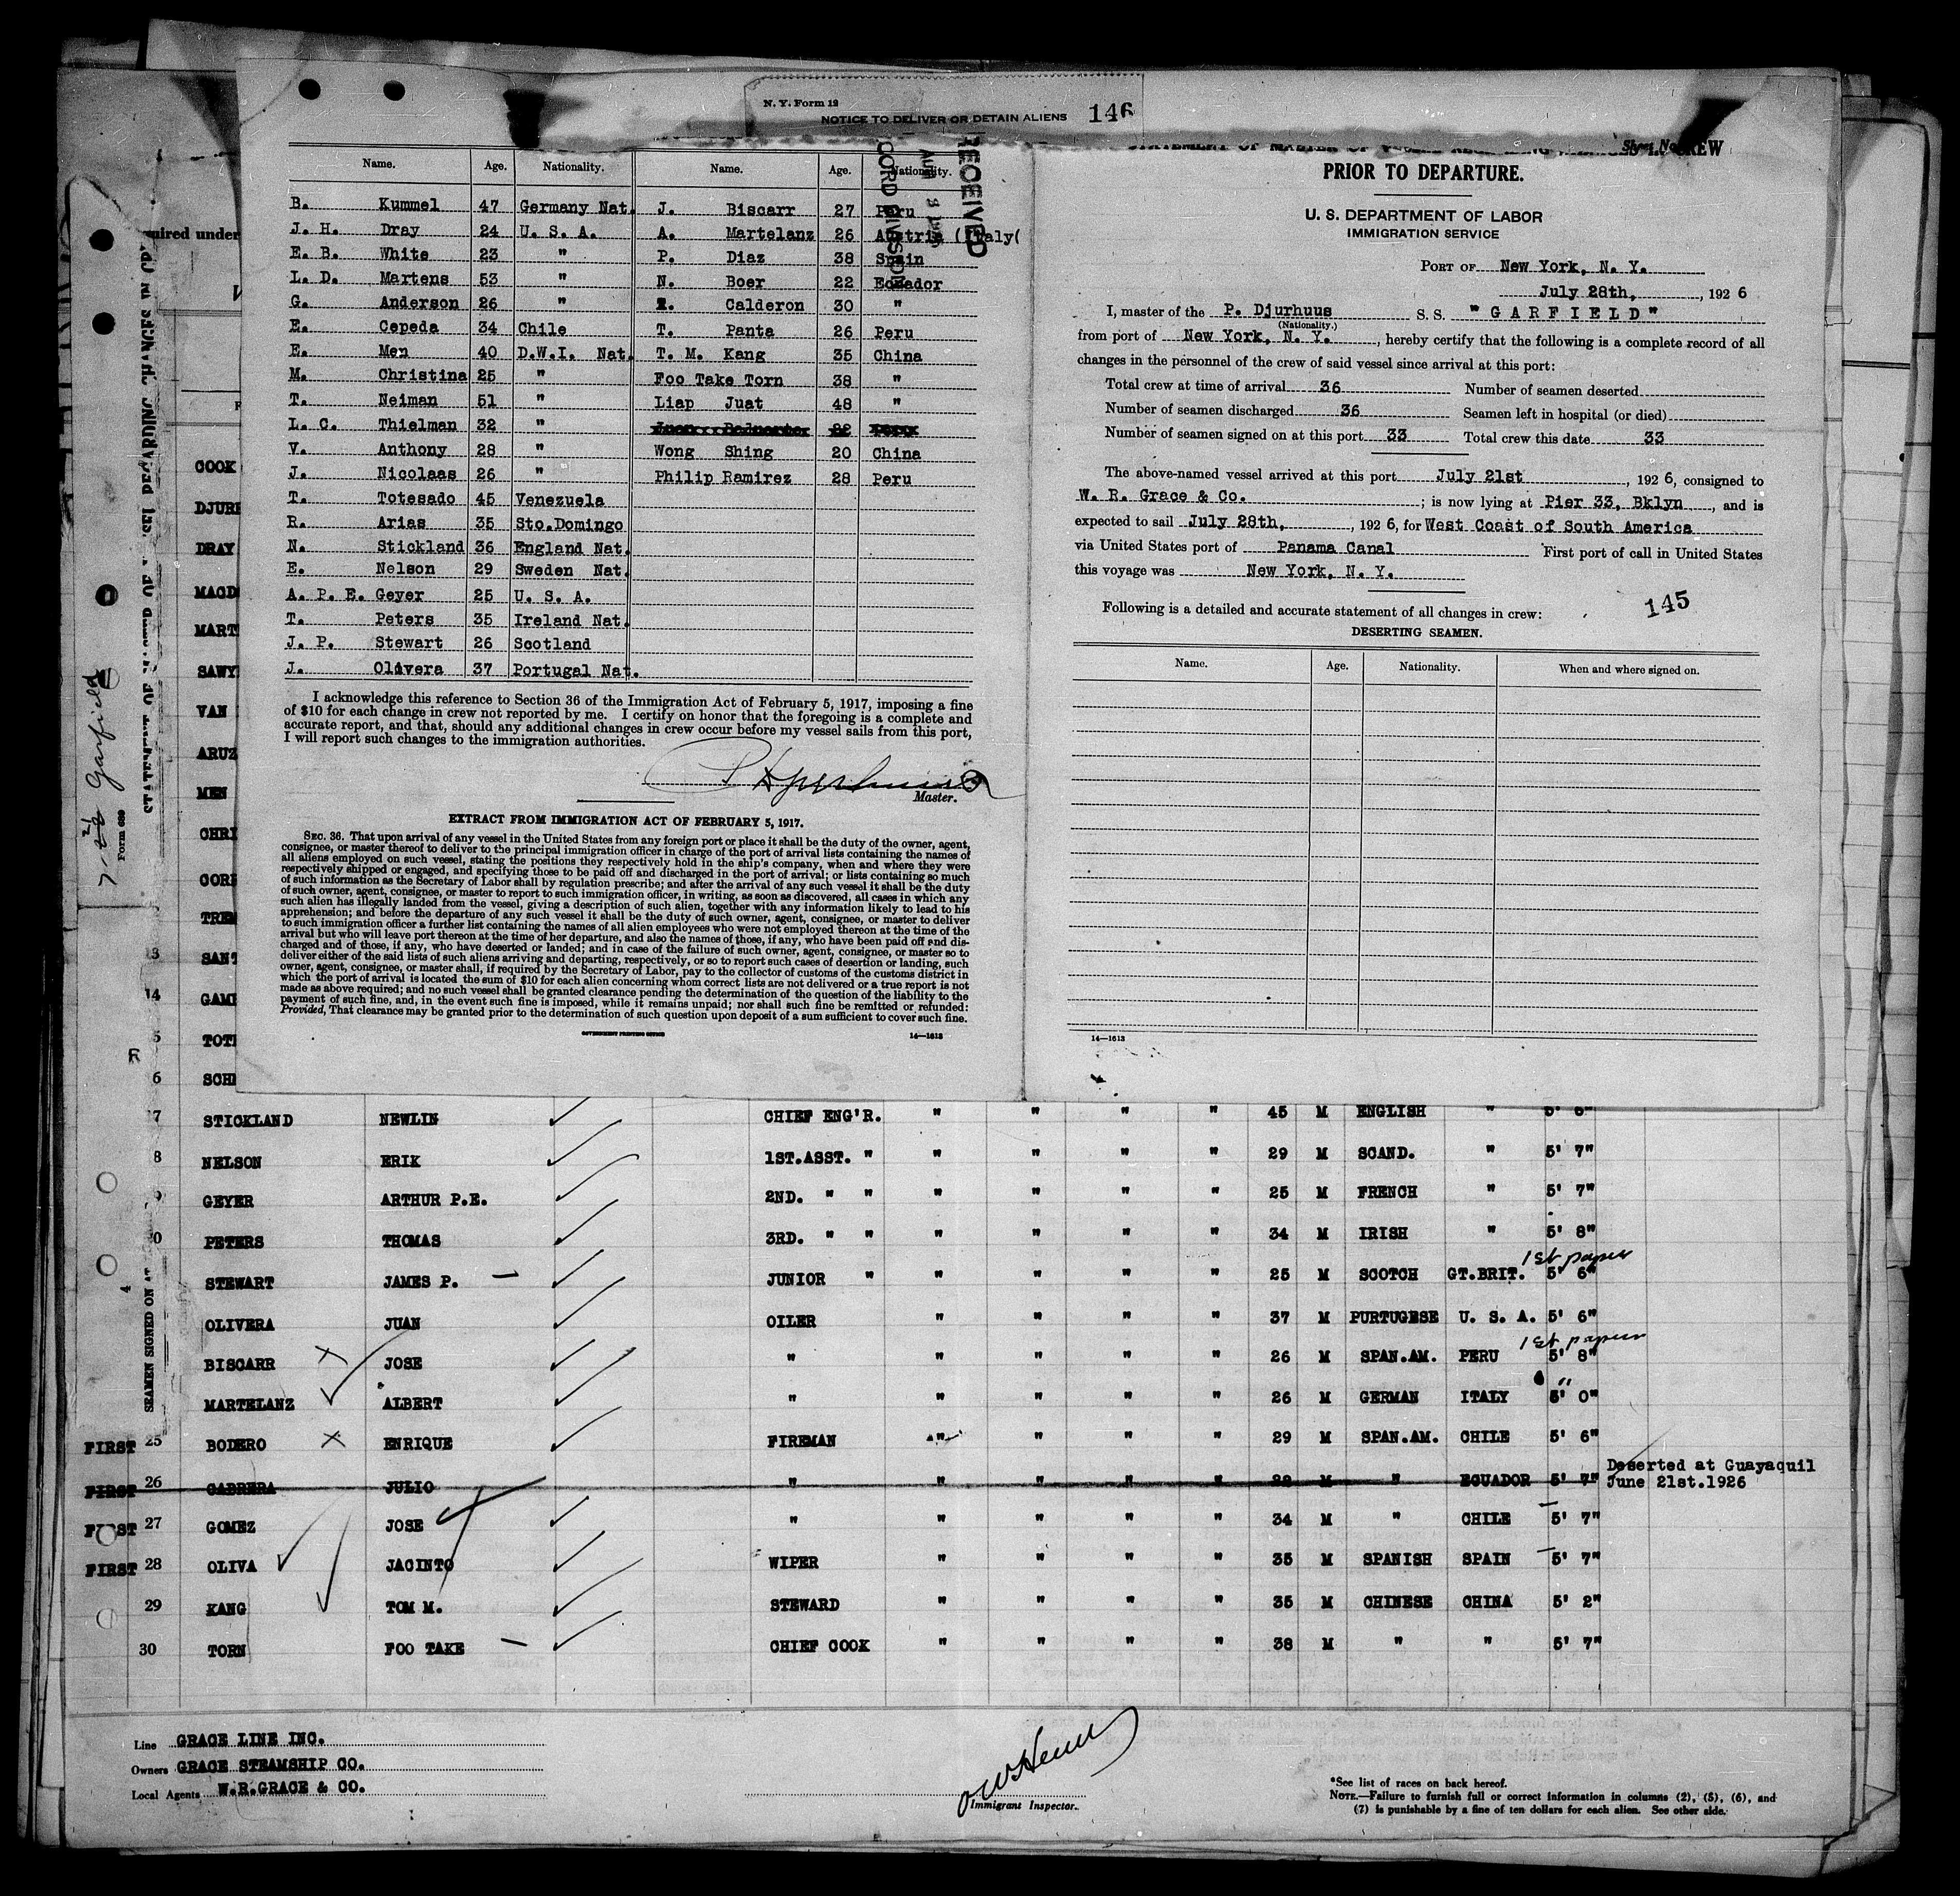 N. Y. Form 12
NOTICE TO DELIVER OR DETAIN ALIENS 146
RECEIVED
Name. Age. Nationality. Name. Age. Nationality.
B. Kummel 47 Germany Nat. J. Biscarr 27 Peru
J. H. Dray 24 U. S. A. A. Martelanz 26 Austria (Italy(
E. B. White 23 " P. Diaz 38 Spain
L. D. Martens 53 " N. Boer 22 Ecuador
G. Anderson 26 " Calderon 30 "
E. Cepeda 34 Chile T. Panta 26 Peru
E. Men 40 D.W.I. Nat. T. M. Kang 35 China
M. Christina 25 " Foo Take Torn 38 "
T. Neiman 51 " Liap Juat 48 "
L. C. Thielman 32 "
V. Anthony 28 " Wong Shing 20 China
J. Nicolaas 26 " Philip Ramirez 28 Peru
T. Totesado 45 Venezuela
R. Arias 35 Sto.Domingo
N. Stickland 36 England Nat.
E. Nelson 29 Sweden Nat.
A. P. E. Geyer 25 U. S. A.
T. Peters 35 Ireland Nat.
J. P. Stewart 26 Scotland
J. Olivera 37 Portugal Nat.
I acknowledge this reference to Section 36 of the Immigration Act of February 5, 1917, imposing a fine
of $10 for each change in crew not reported by me. I certify on honor that the foregoing is a complete and
accurate report, and that, should any additional changes in crew occur before my vessel sails from this port,
I will report such changes to the immigration authorities.
Master.
EXTRACT FROM IMMIGRATION ACT OF FEBRUARY 5, 1917.
SEC. 36. That upon arrival of any vessel in the United States from any foreign port or place it shall be the duty of the owner, agent,
consignee, or master thereof to deliver to the principal immigration officer in charge of the port of arrival lists containing the names of
all aliens employed on such vessel, stating the positions they respectively hold in the ship's company, when and where they were
respectively shipped or engaged, and specifying those to be paid off and discharged in the port of arrival; or lists containing so much
of such information as the Secretary of Labor shall by regulation prescribe; and after the arrival of any such vessel it shall be the duty
of such owner, agent, consignee, or master to report to such immigration officer, in writing, as soon as discovered, all cases in which any
such alien has illegally landed from the vessel, giving a description of such alien, together with any information likely to lead to his
apprehension; and before the departure of any such vessel it shall be the duty of such owner, agent, consignee, or master to deliver
to such immigration officer a further list containing the names of all alien employees who were not employed thereon at the time of the
arrival but who will leave port thereon at the time of her departure, and also the names of those, if any, who have been paid off and dis-
charged and of those, if any, who have deserted or landed; and in case of the failure of such owner, agent, consignee, or master so to
deliver either of the said lists of such aliens arriving and departing, respectively, or so to report such cases of desertion or landing, such
owner, agent, consignee, or master shall, if required by the Secretary of Labor, pay to the collector of customs of the customs district in
which the port of arrival is located the sum of $10 for each alien concerning whom correct lists are not delivered or a true report is not
made as above required; and no such vessel shall be granted clearance pending the determination of the question of the liability to the
payment of such fine, and, in the event such fine is imposed, while it remains unpaid; nor shall such fine be remitted or refunded:
Provided, That clearance may be granted prior to the determination of such question upon deposit of a sum sufficient to cover such fine.
GOVERNMENT PRINTING OFFICE 14—1613
PRIOR TO DEPARTURE.
U. S. DEPARTMENT OF LABOR
IMMIGRATION SERVICE
PORT OF New York, N. Y.
July 28th, , 192 6
I, master of the P. Djurhuus S. S. "GARFIELD"
(Nationality.)
from port of New York, N. Y. , hereby certify that the following is a complete record of all
changes in the personnel of the crew of said vessel since arrival at this port:
Total crew at time of arrival 36 Number of seamen deserted
Number of seamen discharged 36 Seamen left in hospital (or died)
Number of seamen signed on at this port 33 Total crew this date 33
The above-named vessel arrived at this port July 21st , 192 6, consigned to
W. R. Grace & Co. ; is now lying at Pier 33, Bklyn , and is
expected to sail July 28th, , 192 6, for West Coast of South America
via United States port of Panama Canal First port of call in United States
this voyage was New York, N. Y.
Following is a detailed and accurate statement of all changes in crew: 145
DESERTING SEAMEN.
Name. Age. Nationality. When and where signed on.
14—1613
7-21 Garfield
Form 689
SEAMEN SIGNED ON AT
uired under
COOK
DJUR
DRAY
MACD
MART
SAWY
VAN
ARUZ
MEN
CHRI
CORI
TREM
13 SANT
14 GAME
5 TOTE
6 SCHI
7 STICKLAND NEWLIN CHIEF ENG'R. " " " " 45 M ENGLISH " 5' 6"
8 NELSON ERIK 1ST.ASST. " " " " " 29 M SCAND. " 5' 7"
9 GEYER ARTHUR P.E. 2ND. " " " " " " 25 M FRENCH " 5' 7"
0 PETERS THOMAS 3RD. " " " " " " 34 M IRISH " 5' 8"
1st paper
STEWART JAMES P. — JUNIOR " " " " " 25 M SCOTCH GT.BRIT. 5' 6"
OLIVERA JUAN OILER " " " " 37 M PURTUGESE U. S. A. 5' 6"
1st papers
BISCARR JOSE " " " " " 26 M SPAN.AM. PERU 5' 8"
MARTELANZ ALBERT " " " " " 26 M GERMAN ITALY 5' 0"
FIRST 25 BODERO ENRIQUE FIREMAN " " " " 29 M SPAN.AM. CHILE 5' 6"
FIRST 26 CABRERA JULIO " " " " " 22 M " ECUADOR 5' 7" Deserted at Guayaquil
June 21st.1926
FIRST 27 GOMEZ JOSE " " " " " 34 M " CHILE 5' 7"
FIRST 28 OLIVA JACINTO WIPER " " " " 35 M SPANISH SPAIN 5' 7"
29 KANG TOM M. STEWARD " " " " 35 M CHINESE CHINA 5' 2"
30 TORN FOO TAKE — CHIEF COOK " " " " 38 M " " 5' 7"
Line GRACE LINE INC.
Owners GRACE STEAMSHIP CO.
Local Agents W.R.GRACE & CO.
Immigrant Inspector.
*See list of races on back hereof.
NOTE.—Failure to furnish full or correct information in columns (2), (5), (6), and
(7) is punishable by a fine of ten dollars for each alien. See other side.